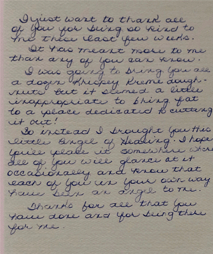 I just want to thank all
of you for being so kind to
me these last few weeks.
It has meant more to me
than any of you can know.
I was going to bring you all
a dozen Krispey Kreme dough-
nuts but it seemed a little
inappropriate to bring fat
to a place dedicated to cutting
it out!
So instead I brought you this
little Angel of Healing. I hope
you'll place it somewhere where
all of you will glance at it
occasionally and know that
each of you in your own way
have been an angle to me.
Thanks for all that you
have done and for being there
for me.